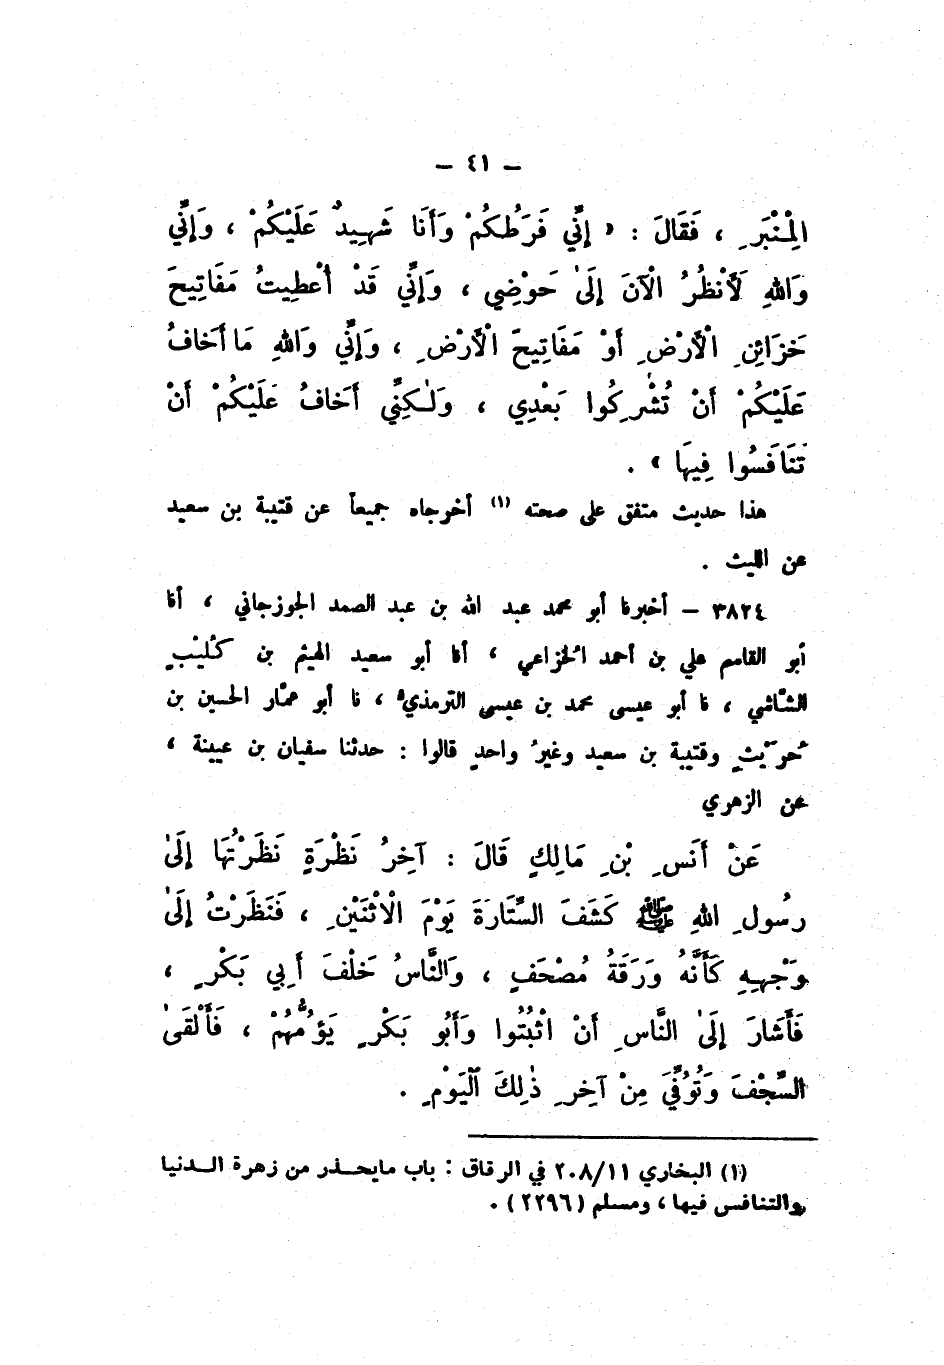 - ٤١ -
المِنْبَرِ ، فَقَالَ : « إِنِّي فَرَطُكُمْ وَأَنَا شَهِيدٌ عَلَيْكُمْ ، وَإِنِّي
وَاللهِ لَأَنْظُرُ الْآنَ إِلَىٰ حَوْضِي ، وَإِنِّي قَدْ أُعْطِيتُ مَفَاتِيحَ
خَزَائِنِ الْأَرْضِ أَوْ مَفَاتِيحَ الْأَرْضِ ، وَإِنِّي وَاللهِ مَا أَخَافُ
عَلَيْكُمْ أَنْ تُشْرِكُوا بَعْدِي ، وَلٰـكِنِّي أَخَافُ عَلَيْكُمْ أَنْ
تَنَافَسُوا فِيهَا » .
هذا حديث متفق على صحته (١) أخرجاه جميعاً عن قتيبة بن سعيد
عن الليث .
٣٨٢٤ – أخبرنا أبو محمد عبد الله بن عبد الصمد الجوزجاني ، أنا
أبو القاسم علي بن أحمد الخزاعي ، أنا أبو سعيد الهيثم بن كُلَيْبٍ
الشاشي ، نا أبو عيسى محمد بن عيسى الترمذيُّ ، نا أبو عمّار الحسين بن
حُرَيْثٍ وقتيبة بن سعيد وغيرُ واحدٍ قالوا : حدثنا سفيان بن عيينة ،
عن الزهري
عَنْ أَنَسِ بْنِ مَالِكٍ قَالَ : آخِرُ نَظْرَةٍ نَظَرْتُهَا إِلَىٰ
رسُولِ اللهِ ﷺ كَشَفَ السِّتَارَةَ يَوْمَ الْاثْنَيْنِ ، فَنَظَرْتُ إِلَىٰ
وَجْهِهِ كَأَنَّهُ وَرَقَةُ مُصْحَفٍ ، وَالنَّاسُ خَلْفَ أَبِي بَكْرٍ ،
فَأَشَارَ إِلَىٰ النَّاسِ أَنْ اثْبُتُوا وَأَبُو بَكْرٍ يَؤُمُّهُمْ ، فَأَلْقَىٰ
السِّجْفَ وَتُوُفِّيَ مِنْ آخِرِ ذٰلِكَ الْيَوْمِ .
(١) البخاري ٢٠٨/١١ في الرقاق : باب مايحـذر من زهرة الـدنيا
والتنافس فيها ، ومسلم (٢٢٩٦) .